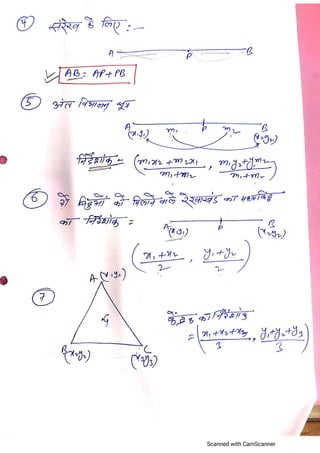 ④ संरेख के लिए :—
A P B
AB = AP + PB
⑤ अंत विभाजन सूत्र
A m₁ P m₂ B
(x,y₁) (x₂y₂)
निर्देशांक = (m₁x₂ + m₂x₁ / m₁+m₂ , m₁y₂+y₁m₂ / m₁+m₂)
⑥ दो बिन्दुओं को मिलाने वाले रेखाखंड का मध्यबिंदु
का निर्देशांक = A P B
(x,y₁) (x₂y₂)
(x₁+x₂ / 2 , y₁+y₂ / 2)
⑦ A (x,y₁)
G
B (x₂y₂) C (x₃y₃)
केन्द्रक का निर्देशांक
= (x₁+x₂+x₃ / 3 , y₁+y₂+y₃ / 3)
Scanned with CamScanner